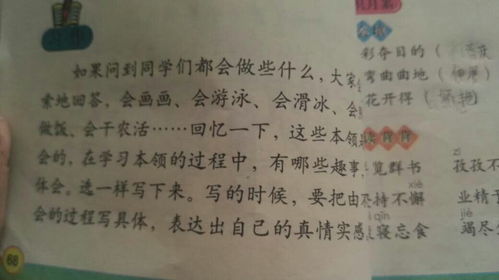 习作
如果问到同学们都会做些什么，大家
索地回答，会画画、会游泳、会滑冰、会
做饭、会干农活……回忆一下，这些本领
会的，在学习本领的过程中，有哪些趣事，
体会。选一样写下来。写的时候，要把由
会的过程写具体，表达出自己的真情实感
日月累
彩夺目的（
弯曲曲地（
花开得（
读背背
览群书
孜孜不
持不懈
业精于
寝忘食
竭尽
zī
xiè
qǐn
jié
68